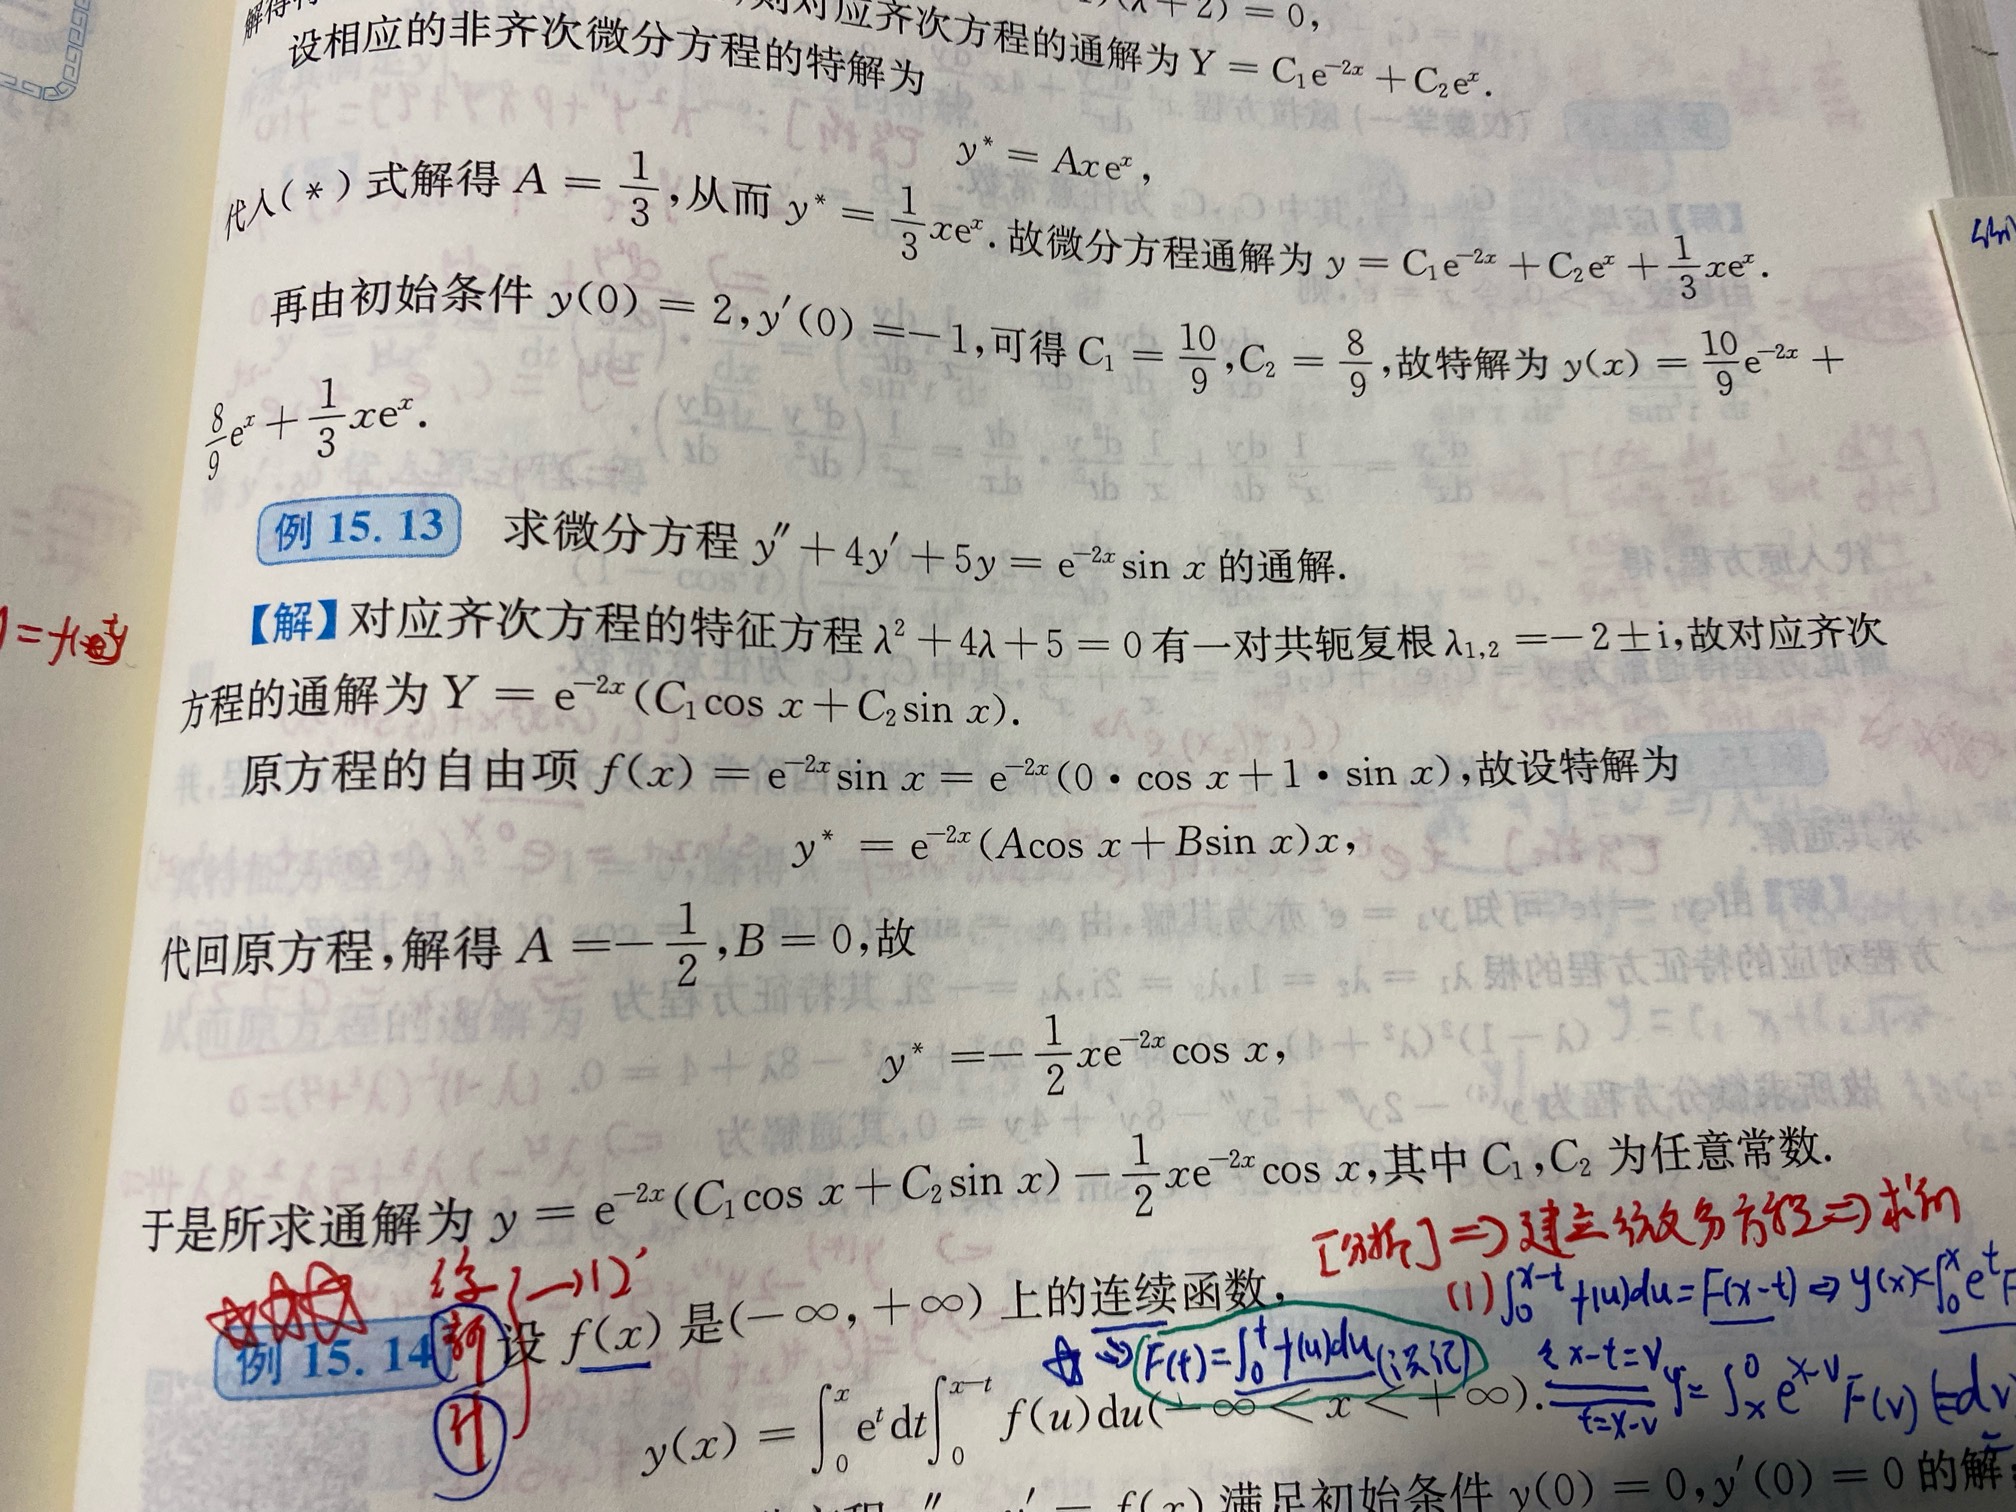 解得
,则对应齐次方程的通解为 Y = C₁e⁻²ˣ + C₂eˣ.
设相应的非齐次微分方程的特解为
y* = Axeˣ,
代入(*)式解得 A = 1/3,从而 y* = 1/3 xeˣ.故微分方程通解为 y = C₁e⁻²ˣ + C₂eˣ + 1/3 xeˣ.
再由初始条件 y(0) = 2,y′(0) =-1,可得 C₁ = 10/9,C₂ = 8/9,故特解为 y(x) = 10/9 e⁻²ˣ +
8/9 eˣ + 1/3 xeˣ.
例 15.13 求微分方程 y″ + 4y′ + 5y = e⁻²ˣ sin x 的通解.
【解】对应齐次方程的特征方程 λ² + 4λ + 5 = 0 有一对共轭复根 λ₁,₂ =-2 ± i,故对应齐次
方程的通解为 Y = e⁻²ˣ(C₁cos x + C₂sin x).
原方程的自由项 f(x) = e⁻²ˣ sin x = e⁻²ˣ(0 · cos x + 1 · sin x),故设特解为
y* = e⁻²ˣ(Acos x + Bsin x)x,
代回原方程,解得 A =- 1/2,B = 0,故
y* =- 1/2 xe⁻²ˣ cos x,
于是所求通解为 y = e⁻²ˣ(C₁cos x + C₂sin x) - 1/2 xe⁻²ˣ cos x,其中 C₁,C₂ 为任意常数.
[分析] ⇒ 建立微分方程 ⇒ 求解
(1) ∫₀ˣ⁻ᵗ f(u)du = F(x-t) ⇒ y(x)= ∫₀ˣ eᵗ F
例 15.14 设 f(x) 是(-∞, +∞) 上的连续函数,
⇒ F(t) = ∫₀ᵗ f(u)du (记)
令 x-t=v
t=x-v
y = ∫ₓ⁰ eˣ⁻ᵛ F(v) (-dv
y(x) = ∫₀ˣ eᵗ dt ∫₀ˣ⁻ᵗ f(u)du(-∞ < x < +∞).
满足初始条件 y(0) = 0,y′(0) = 0 的解